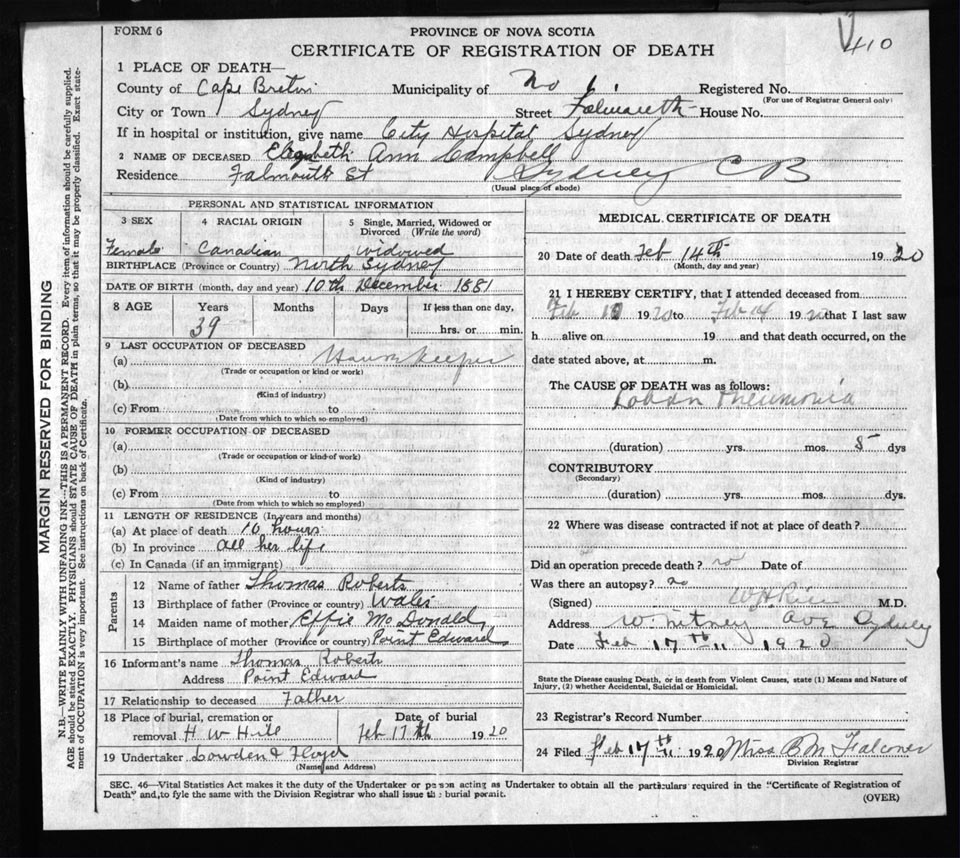 410
FORM 6
PROVINCE OF NOVA SCOTIA
CERTIFICATE OF REGISTRATION OF DEATH
MARGIN RESERVED FOR BINDING
N.B.—WRITE PLAINLY WITH UNFADING INK—THIS IS A PERMANENT RECORD. Every item of information should be carefully supplied.
AGE should be stated EXACTLY. PHYSICIANS should STATE CAUSE OF DEATH in plain terms, so that it may be properly classified. Exact state-
ment of OCCUPATION is very important. See instructions on back of Certificate.
1 PLACE OF DEATH—
County of Cape Breton Municipality of No Registered No.
(For use of Registrar General only)
City or Town Sydney Street House No.
If in hospital or institution, give name City Hospital Sydney
2 NAME OF DECEASED Elizabeth Ann Campbell
Residence Falmouth St Sydney CB
(Usual place of abode)
PERSONAL AND STATISTICAL INFORMATION
3 SEX 4 RACIAL ORIGIN 5 Single, Married, Widowed or
Divorced (Write the word)
Female Canadian widowed
BIRTHPLACE (Province or Country) North Sydney
DATE OF BIRTH (month, day and year) 10th December 1881
8 AGE Years Months Days If less than one day,
39 hrs. or min.
9 LAST OCCUPATION OF DECEASED
(a) Housekeeper
(Trade or occupation or kind or work)
(b)
(Kind of industry)
(c) From to
(Date from which to which so employed)
10 FORMER OCCUPATION OF DECEASED
(a)
(Trade or occupation or kind of work)
(b)
(Kind of industry)
(c) From to
(Date from which to which so employed)
11 LENGTH OF RESIDENCE (In years and months)
(a) At place of death 10 hours
(b) In province all her life
(c) In Canada (if an immigrant)
Parents
12 Name of father Thomas Roberts
13 Birthplace of father (Province or country) Wales
14 Maiden name of mother Effie McDonald
15 Birthplace of mother (Province or country) Point Edward
16 Informant's name Thomas Roberts
Address Point Edward
17 Relationship to deceased Father
18 Place of burial, cremation or Date of burial
removal H W Hill Feb 17th 1920
19 Undertaker Lowden & Floyd
(Name and Address)
MEDICAL CERTIFICATE OF DEATH
20 Date of death Feb 14th 1920
(Month, day and year)
21 I HEREBY CERTIFY, that I attended deceased from
Feb 10 1920 to Feb 14 1920 that I last saw
h alive on 19 and that death occurred, on the
date stated above, at m.
The CAUSE OF DEATH was as follows:
Lobar Pneumonia
(duration) yrs. mos. 5 dys
CONTRIBUTORY
(Secondary)
(duration) yrs. mos. dys.
22 Where was disease contracted if not at place of death?
Did an operation precede death? no Date of
Was there an autopsy? no
(Signed) M.D.
Address Whitney Ave Sydney
Date Feb 17th 1920
State the Disease causing Death, or in death from Violent Causes, state (1) Means and Nature of
Injury, (2) whether Accidental, Suicidal or Homicidal.
23 Registrar's Record Number
24 Filed Feb 17th 1920 Miss B M Falconer
Division Registrar
SEC. 46—Vital Statistics Act makes it the duty of the Undertaker or person acting as Undertaker to obtain all the particulars required in the "Certificate of Registration of
Death" and to fyle the same with the Division Registrar who shall issue the burial permit.
(OVER)